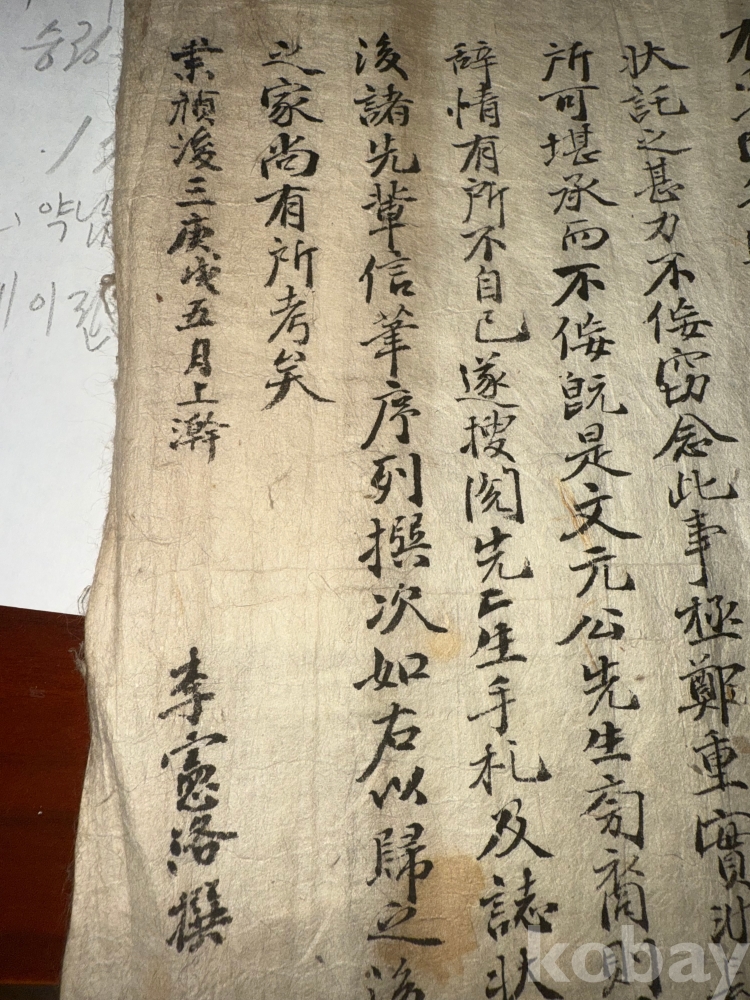 狀託之甚力不佞竊念此事極鄭重實
所可堪承而不佞旣是文元公先生旁裔則
辭情有所不自已遂搜閱先生手札及誌狀
後諸先輩信筆序列撰次如右以歸之後
之家尚有所考矣
崇禎後三庚戌五月上澣
李憲洛撰
kobay